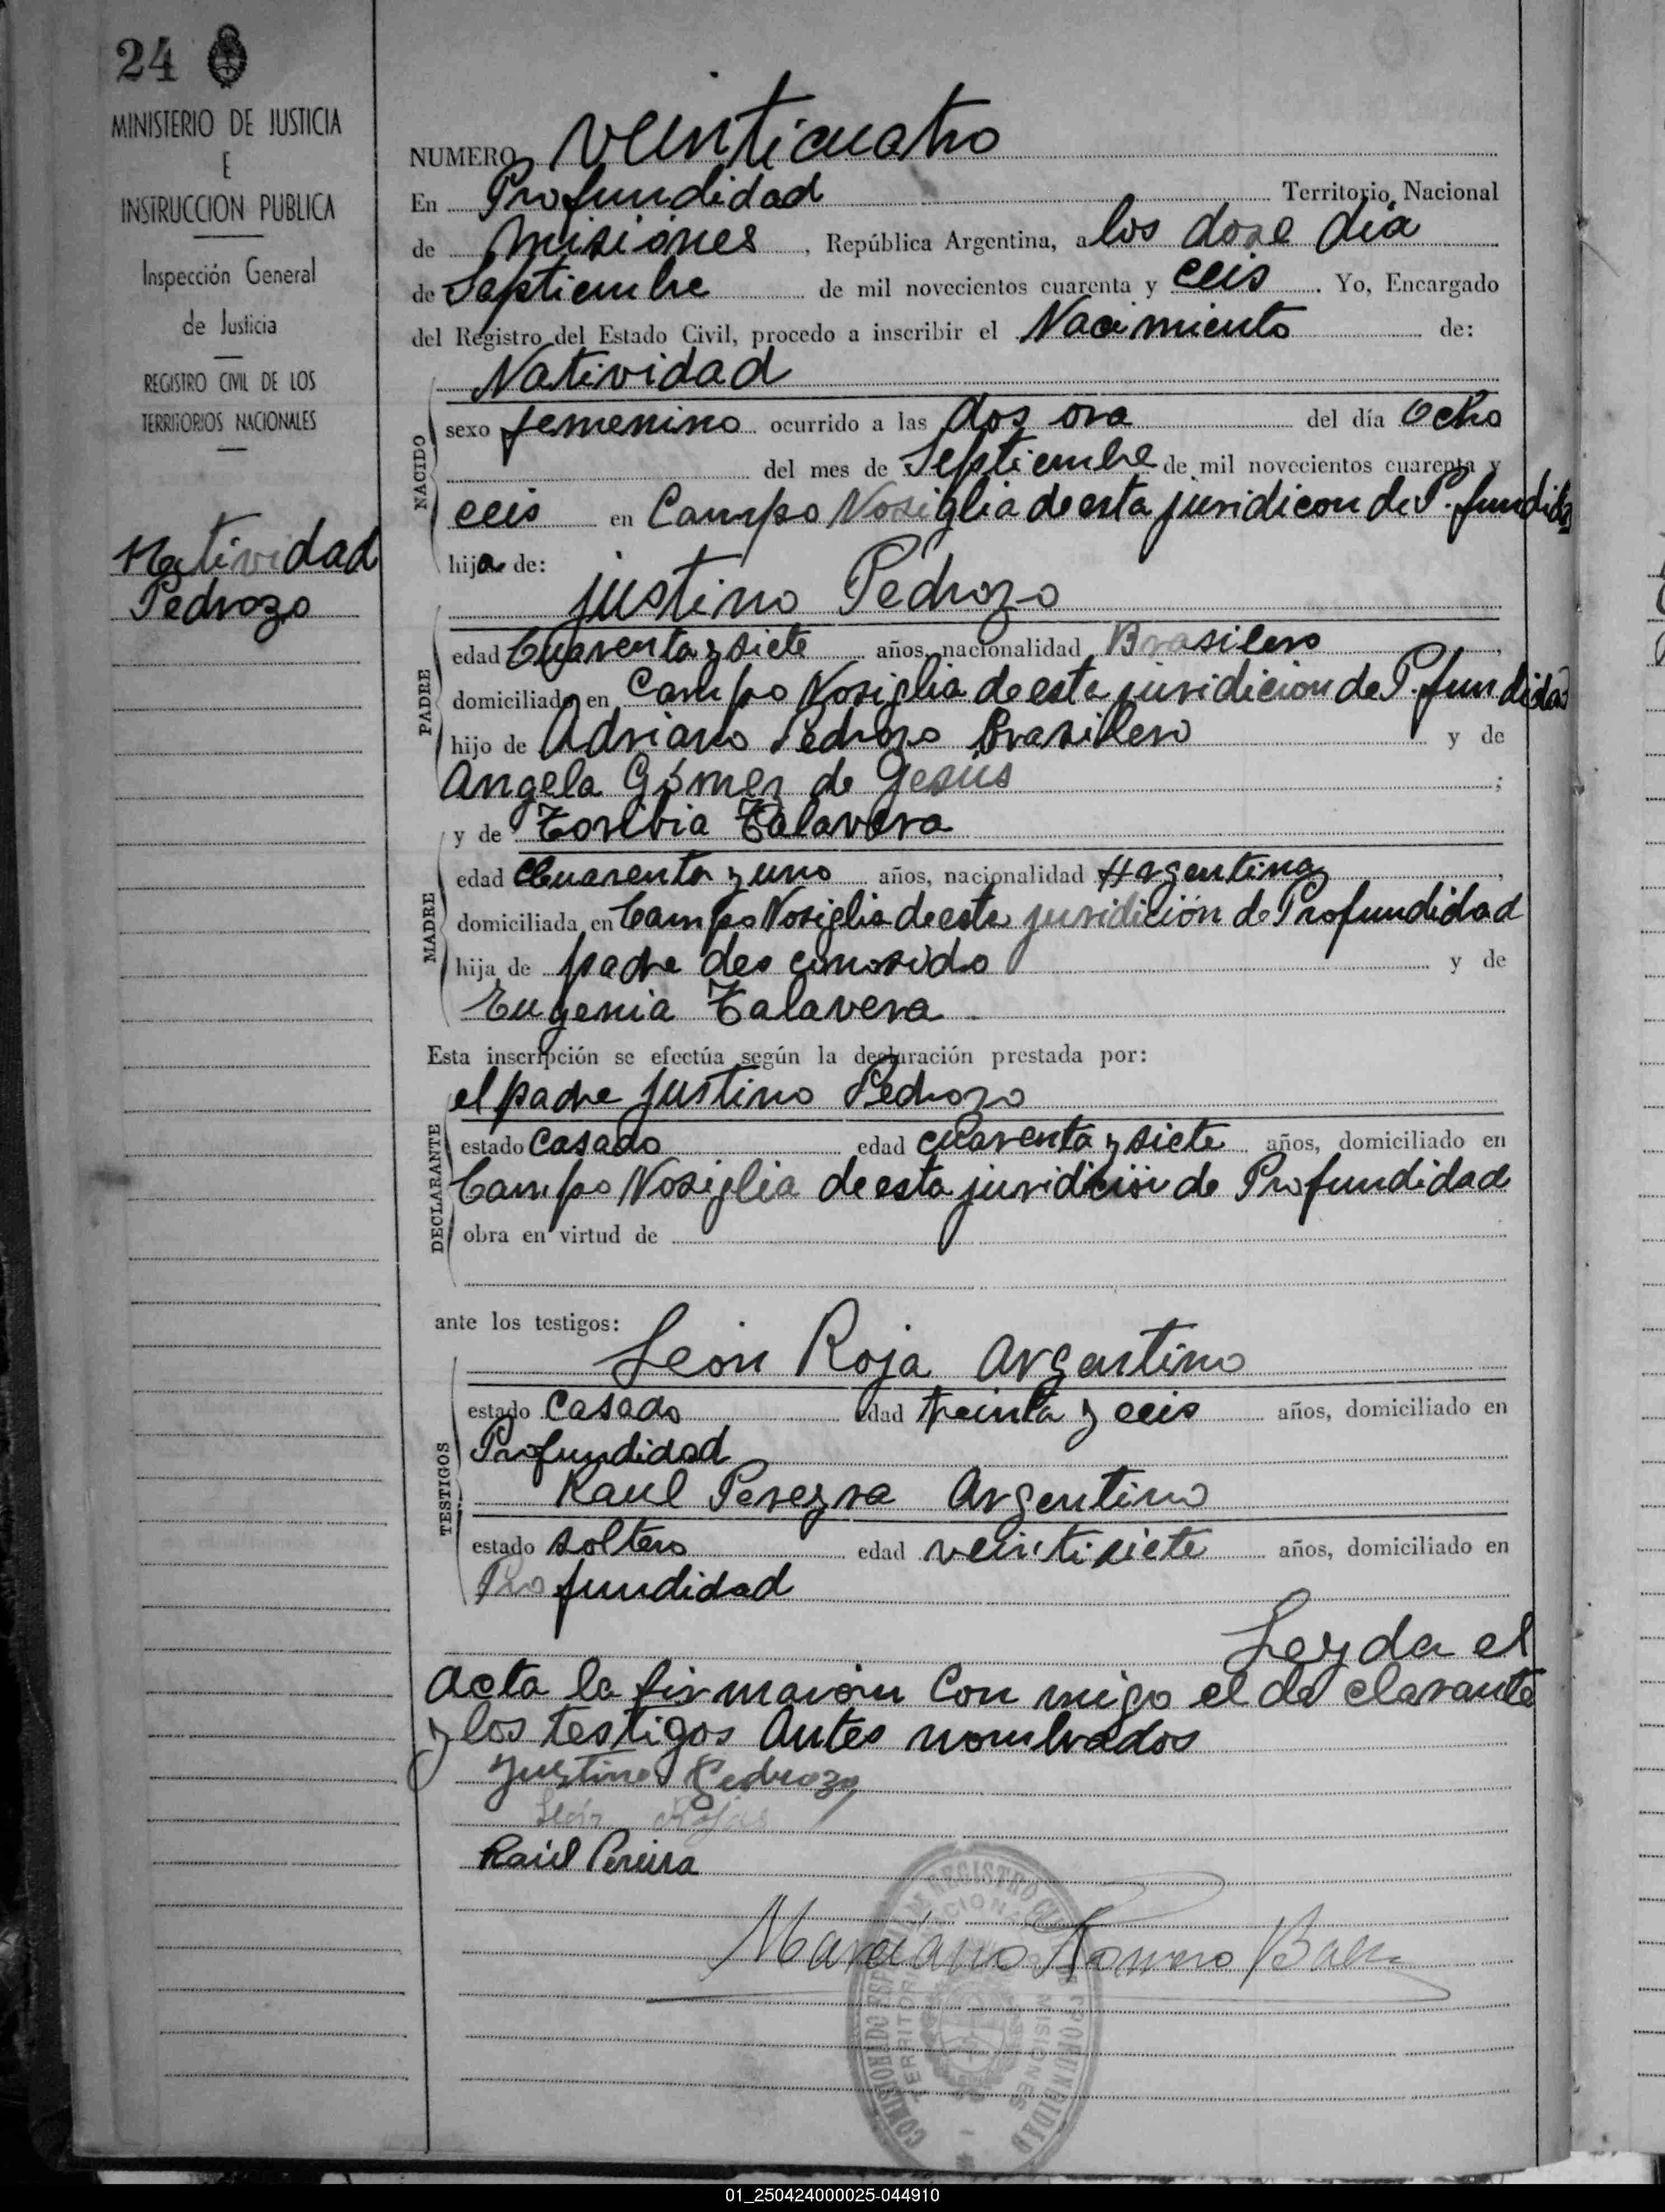 24
MINISTERIO DE JUSTICIA
E
INSTRUCCION PUBLICA
Inspección General
de Justicia
REGISTRO CIVIL DE LOS
TERRITORIOS NACIONALES
Natividad
Pedrozo
NUMERO veinticuatro
En Profundidad Territorio Nacional
de Misiones, República Argentina, a los dose dia
de Septiembre de mil novecientos cuarenta y ceis. Yo, Encargado
del Registro del Estado Civil, procedo a inscribir el Nacimiento de:
Natividad
NACIDO
sexo femenino ocurrido a las dos ora del día ocho
del mes de Septiembre de mil novecientos cuarenta y
ceis en Campo Nosiglia de esta juridicon de P. fundidad
hija de:
justino Pedrozo
PADRE
edad Cuarenta y siete años, nacionalidad Brasilero,
domiciliado en Campo Nosiglia de esta juridicion de P. fundidad
hijo de Adriano Pedrozo Brasilero y de
Angela Gómez de Jesús;
y de Toribia Talavera
MADRE
edad Cuarenta y uno años, nacionalidad Argentina,
domiciliada en Campo Nosiglia de esta juridición de Profundidad
hija de padre des conosido y de
Eugenia Talavera
Esta inscripción se efectúa según la declaración prestada por:
el padre justino Pedrozo
DECLARANTE
estado Casado edad cuarenta y siete años, domiciliado en
Campo Nosiglia de esta juridición de Profundidad
obra en virtud de
ante los testigos:
León Roja Argentino
TESTIGOS
estado Casado edad treinta y ceis años, domiciliado en
Profundidad
Raul Pereyra Argentino
estado soltero edad veintisiete años, domiciliado en
Profundidad
Leyda el
acta la firmaron Con migo el de clarante
y los testigos Antes nombrados
Justino Pedrozo
León Rojas
Raúl Pereira
Marciano Romero Baez
REGISTRO
TERRITORIO
MISIONES
PROFUNDIDAD
01_250424000025-044910